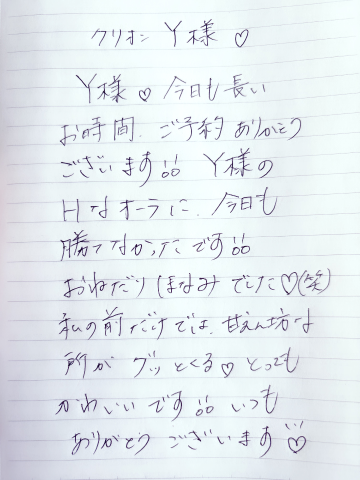 クリオン Y様 ♡
Y様 ♡ 今日も長い
お時間、ご予約ありがとう
ございます!! Y様の
Hなオーラに、今日も
勝てなかったです!!
おねだりほなみでした♡(笑)
私の前だけでは、甘えん坊な
所がグッとくる♡とっても
かわいいです!! いつも
ありがとうございます♡